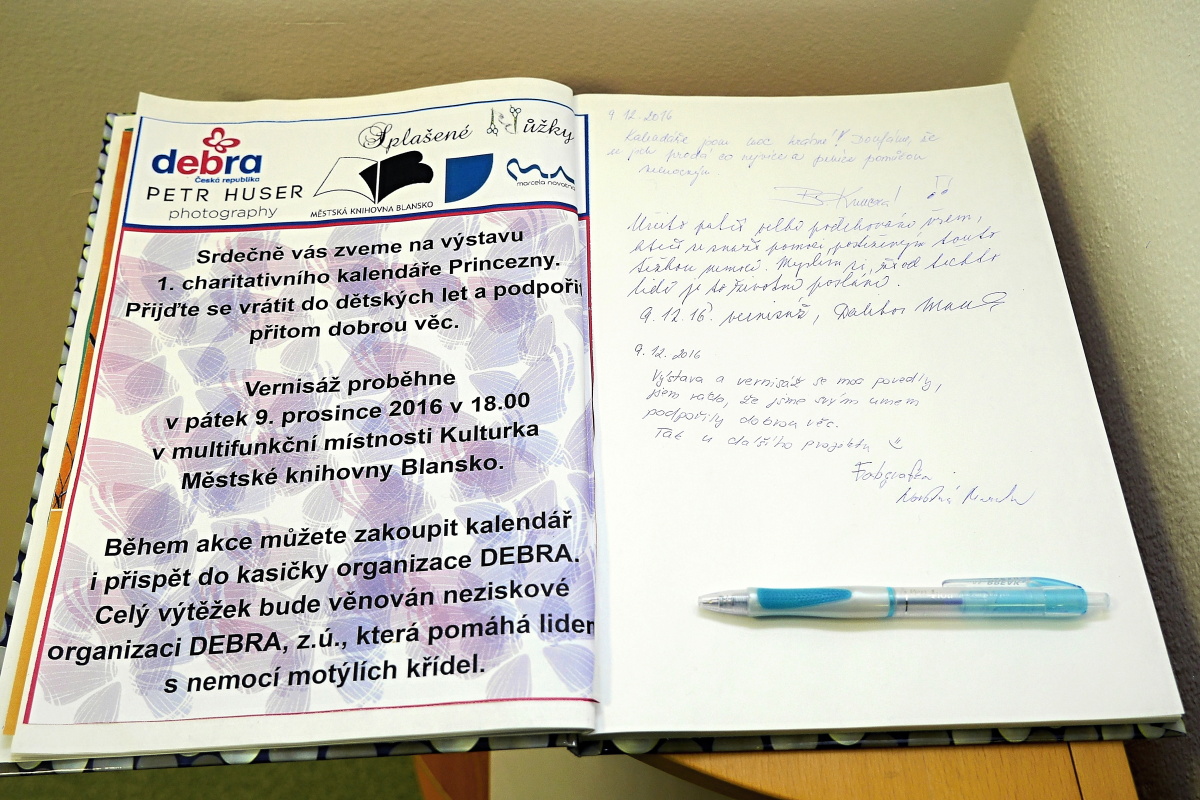 debra
Česká republika
Splašené Nůžky
PETR HUSER
photography
MĚSTSKÁ KNIHOVNA BLANSKO
marcela novotná
Srdečně vás zveme na výstavu
1. charitativního kalendáře Princezny.
Přijďte se vrátit do dětských let a podpořit
přitom dobrou věc.
Vernisáž proběhne
v pátek 9. prosince 2016 v 18.00
v multifunkční místnosti Kulturka
Městské knihovny Blansko.
Během akce můžete zakoupit kalendář
i přispět do kasičky organizace DEBRA.
Celý výtěžek bude věnován neziskové
organizaci DEBRA, z.ú., která pomáhá lidem
s nemocí motýlích křídel.
9.12.2016
Kalendáře jsou moc krásné! Doufám, že
se jich prodá co nejvíce a peníze pomůžou
nemocným.
Uznání patří velké poděkování všem,
kteří se snaží pomoci postiženým touto
těžkou nemocí. Myslím si, že od těchto
lidí je to životní poslání.
9.12.16. vernisáž, Dalibor
9.12.2016
Výstava a vernisáž se moc povedly,
jsem ráda, že jsme svým umem
podpořily dobrou věc.
Tak u dalšího projektu
Fotografka
Novotná Marcela